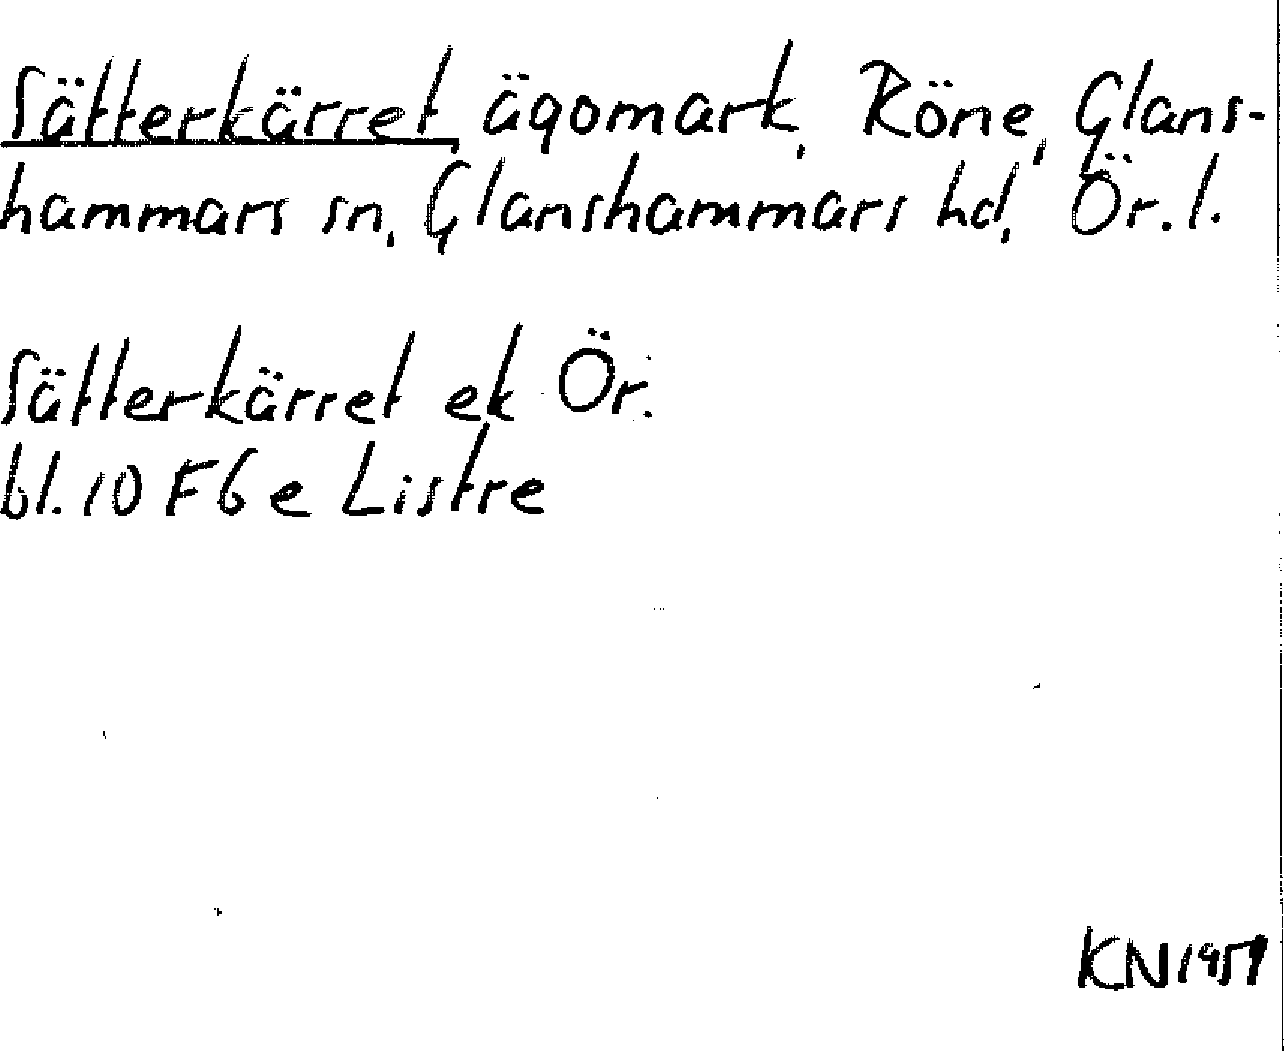 Sätterkärret, ägomark, Röne, Glans-
hammars sn, Glanshammars hd, Ör. l.
Sätterkärret ek Ör.
bl. 10 F6e Listre
KN 1959